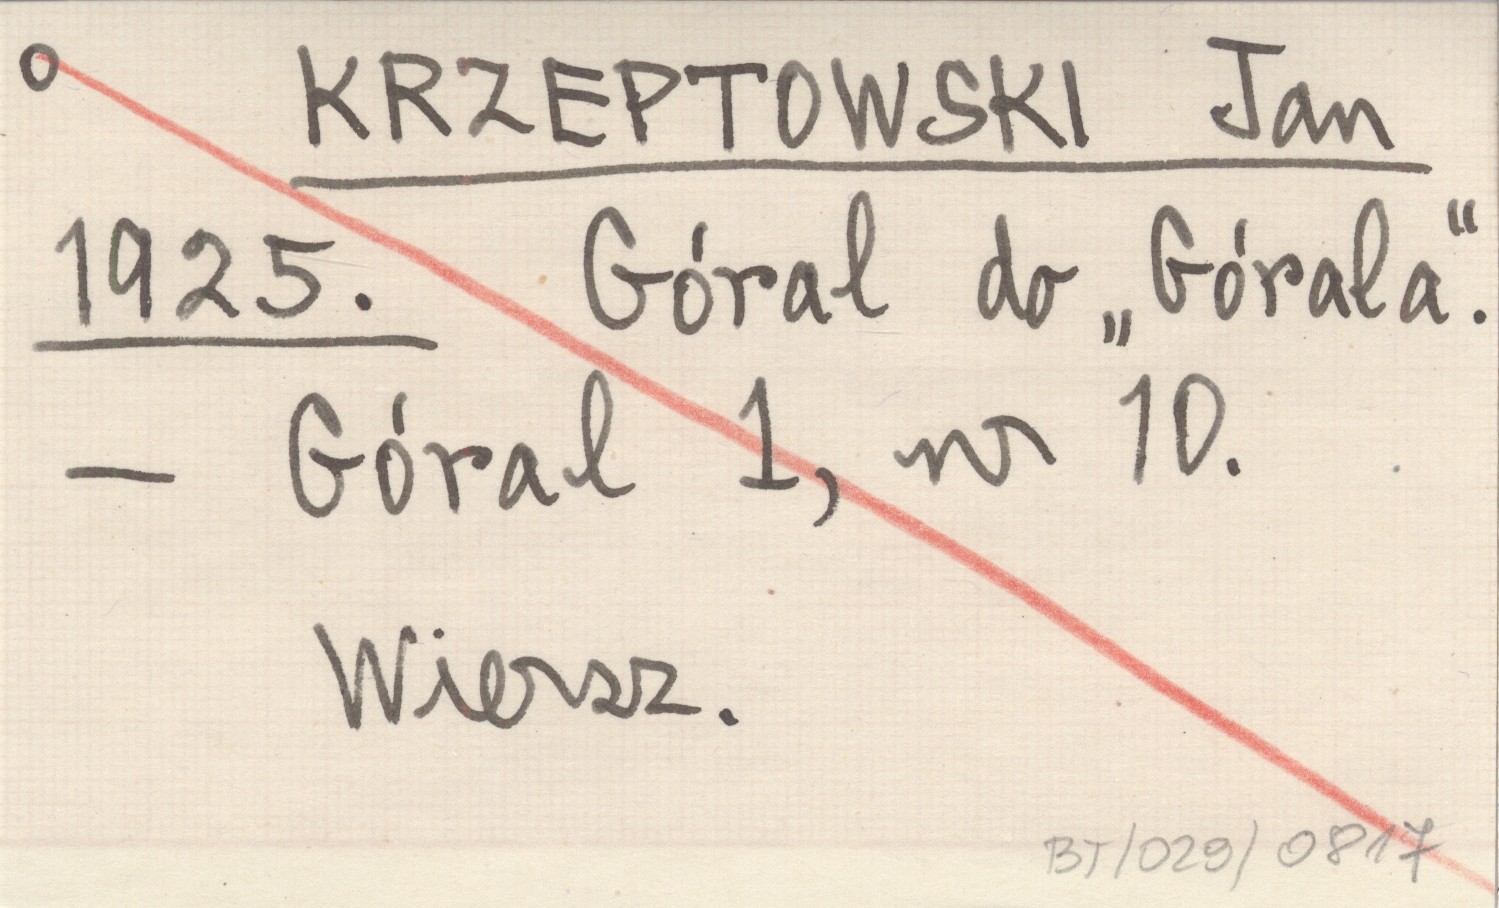 o KRZEPTOWSKI Jan
1925. Góral do „Górala“.
— Góral 1, nr 10.
Wiersz.
BT/029/0817